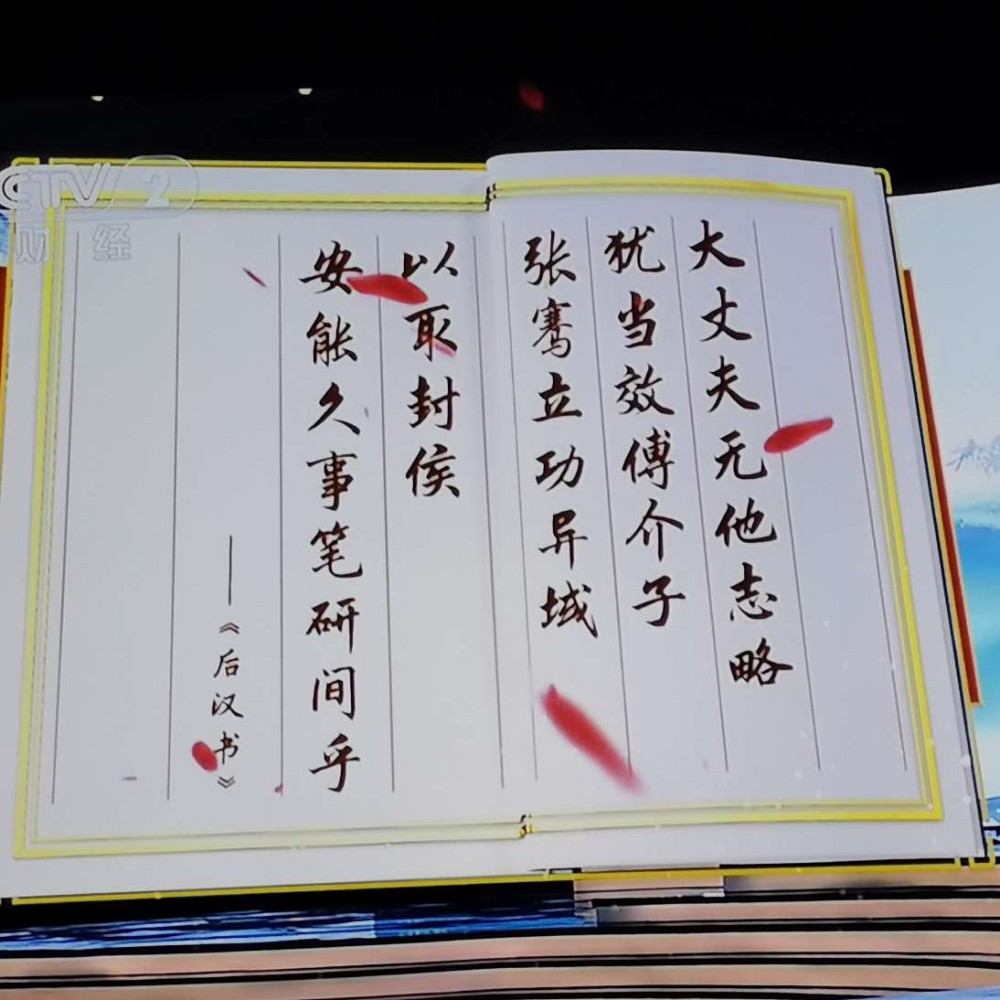 CCTV 2
财经
大丈夫无他志略
犹当效傅介子
张骞立功异域
以取封侯
安能久事笔研间乎
——《后汉书》